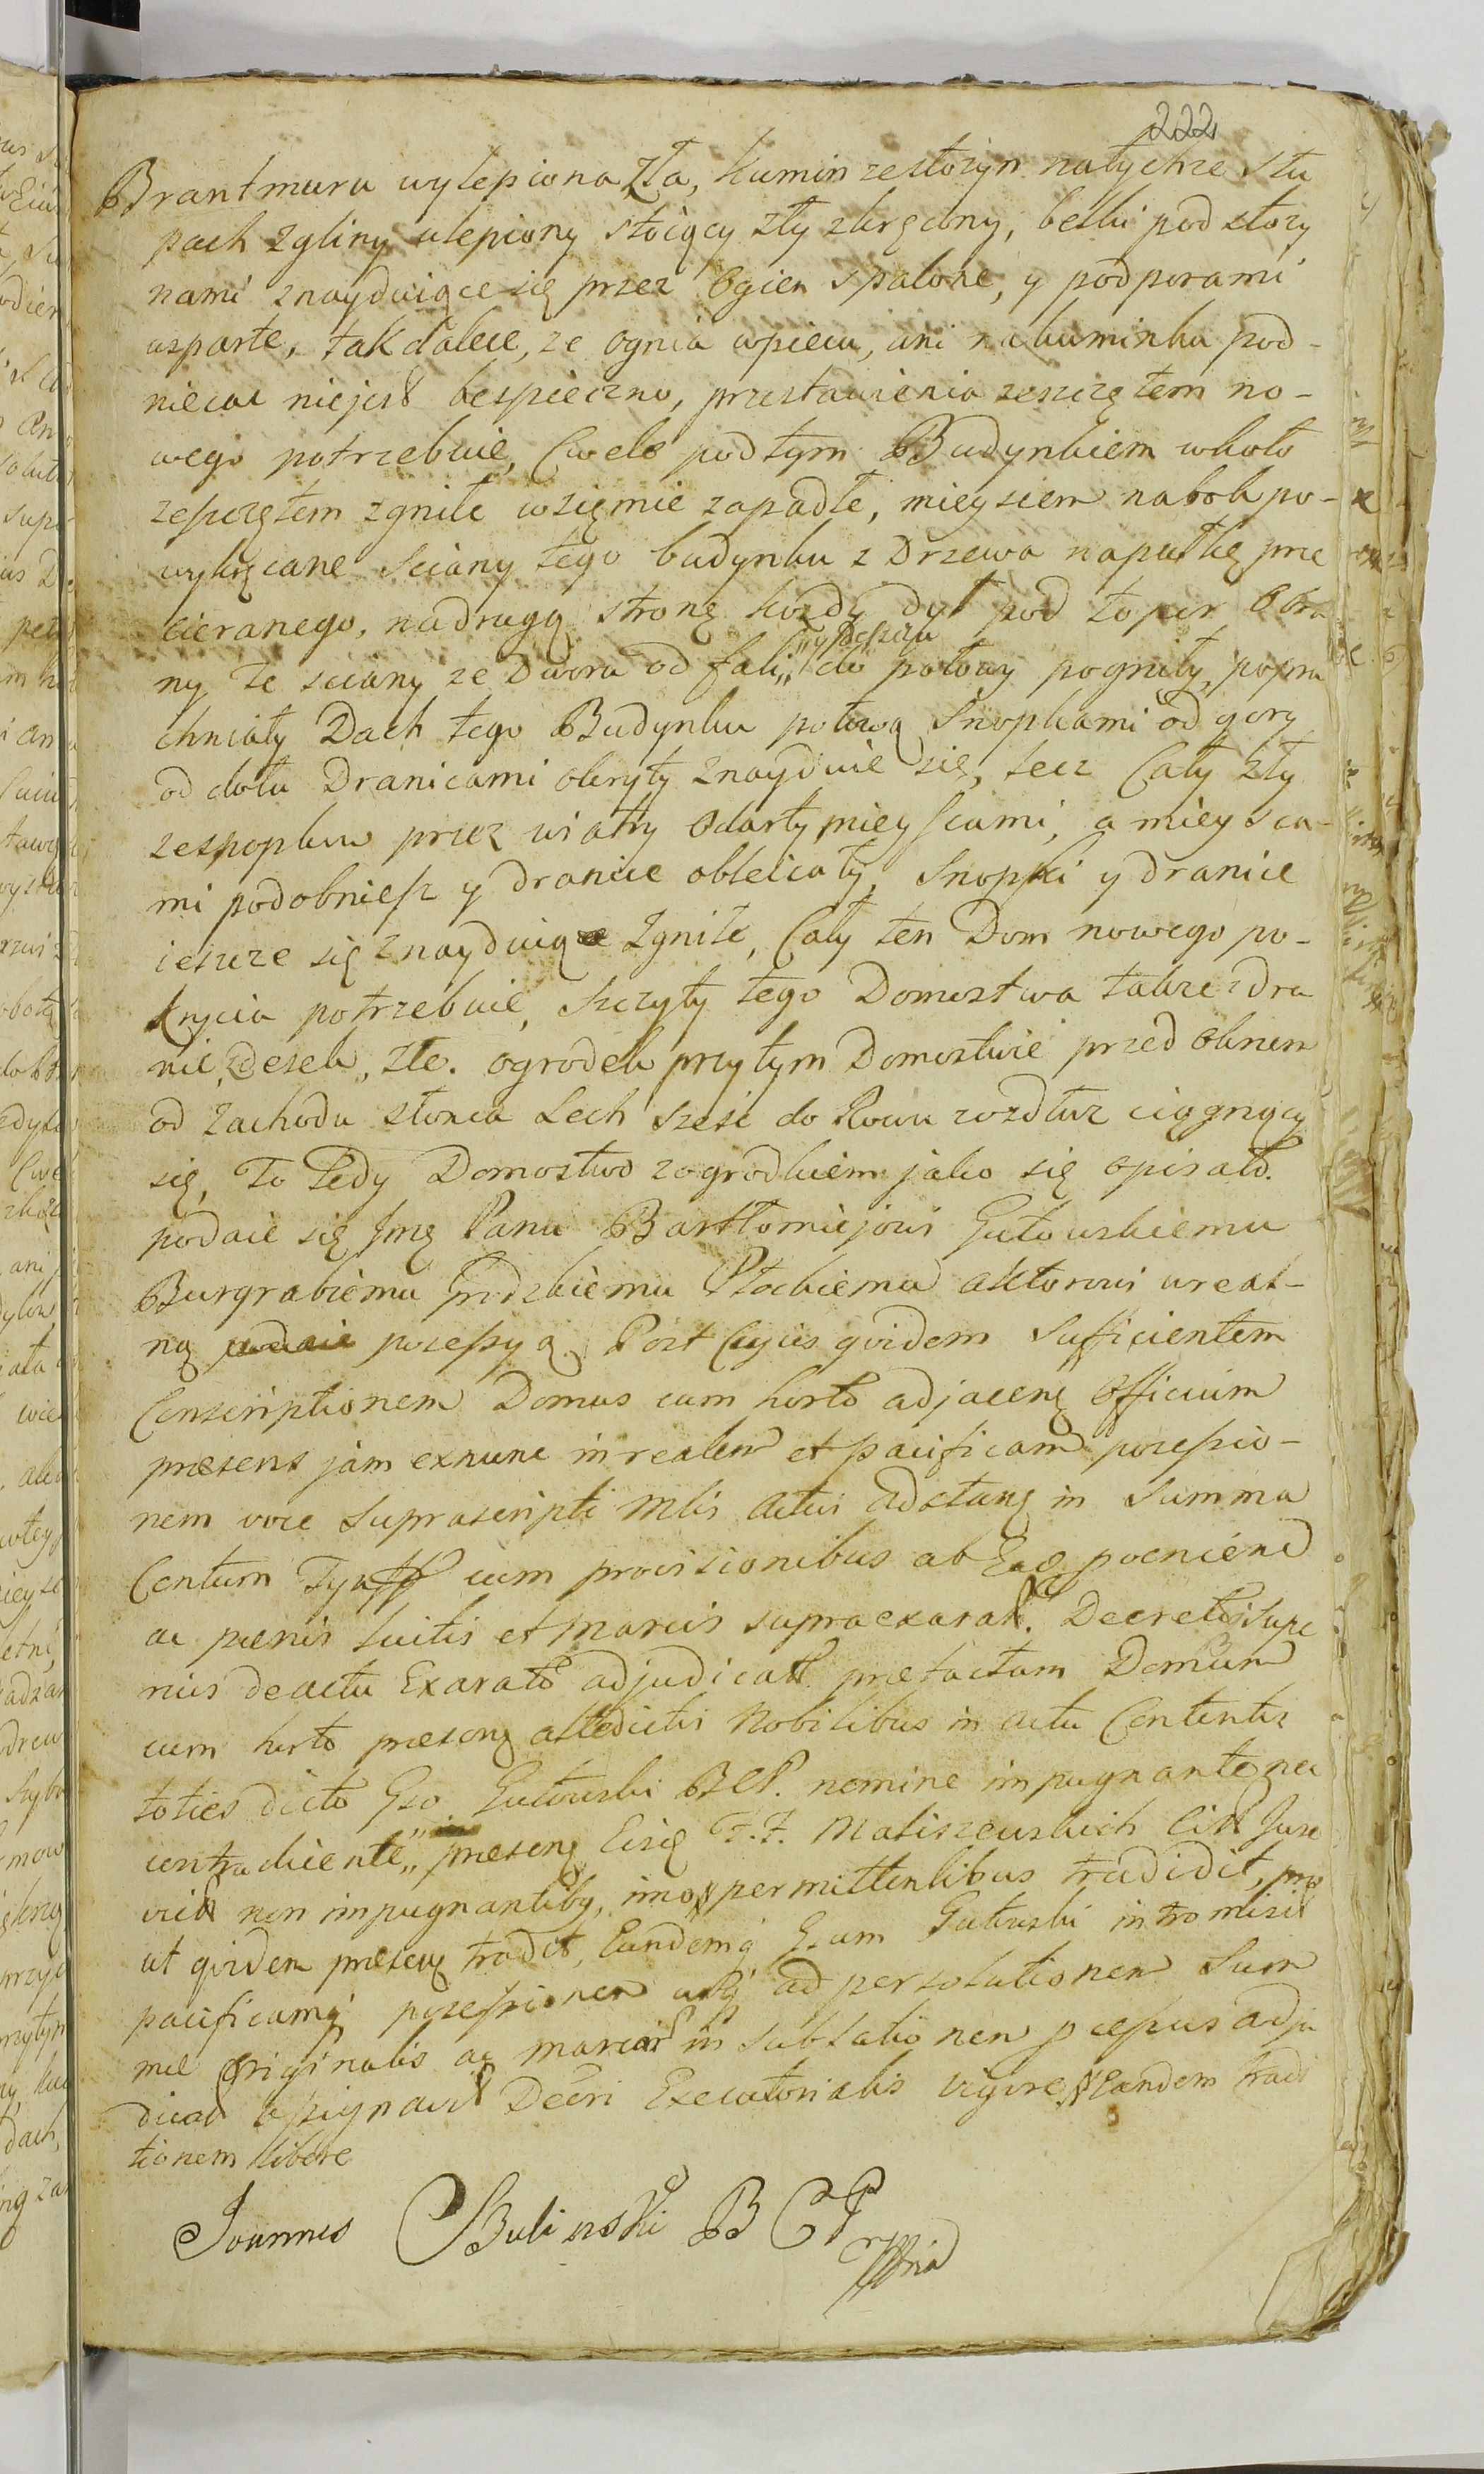 222
Brantmuru wylepiona zła, kumin ze słoiyn na tychze słu
pach z gliny ulepiony stoiący zły zkręcony, belki pod słozy
nami znayduiące się przez Ogien spalone, y podporami
wsparte, tak dalece, ze ognia w piecu, ani na kuminku pod-
niecac niejest bespieczno, przestawienia zeszczętem no-
wego potrzebuie, Cwele pod tym Budynkiem wkoło
zeszczętem zgniłe w ziemie zapadłe, mieyscem na bok po-
wykręcane Sciany tego budynku z Drzewa na piłkę prze
cieranego, na drugą stronę kozdy dyl pod toper Obra
ny te sciany ze Dworu od fali „y deszczu„ do połowy pogniły, popru
chniały Dach tego Budynku połową Snopkami od gory
od dołu Dranicami okryty znayduie się, lecz Cały zły
zespoplew przez wiatry Odarty mieyscami, a mieysca-
mi podobniesz y dranice obleciały, Snopki y dranice
ieszcze się znayduiące Zgniłe, Cały ten Dom nowego po-
krycia potrzebuie, Szczyty tego Domostwa takze z dra
nic, z desek, złe. ogrodek przy tym Domostwie przed Oknem
od Zachodu słonca Lech szesc do Rowu wzdłuz ciągnący
się, To Tedy Domostwo z ogrodkiem jako się opisało.
podaie się Jmę Panu Bartłomiejowi Gutowskiemu
Burgrabiemu Grodzkiemu Płockiemu aktorowi w real-
ną possesyą. Post Cujus qvidem Sufficientem
Conscriptionem Domus cum horto adjacenę Officium
præsens jam exnunc in realem et pacificam possessio-
nem vore Suprascripti Mlis actus adstanę in Summa
Centum Tynff cum provisionibus ab Eadę poeniend
ac poenis luitis et marcis supraexarat. Decretisi supe
rius de actu Exarato adjudicatt. prætactam Domum
cum horto præsenę attedictis Nobilibus in actu Contentis
toties dicto Gso Gutowski BCP. nemine impugnante nec
contradicente„ præsenę Eisę F.F. Maliszewskich Citt Jure
victt non impugnantibę, imo permittentibus tradidit, pro
ut qvidem præsenę tradit, Eundemq Gsum Gutowski intromisit
pacificamq possessionem usq ad persolutionem Sum
mæ Originalis ac marcar in subsationem ræpus adju
dicat assignavit Decri Executorialis vigore Eandem tradi
tionem libere
Joannes Bulinski B C P
mpria